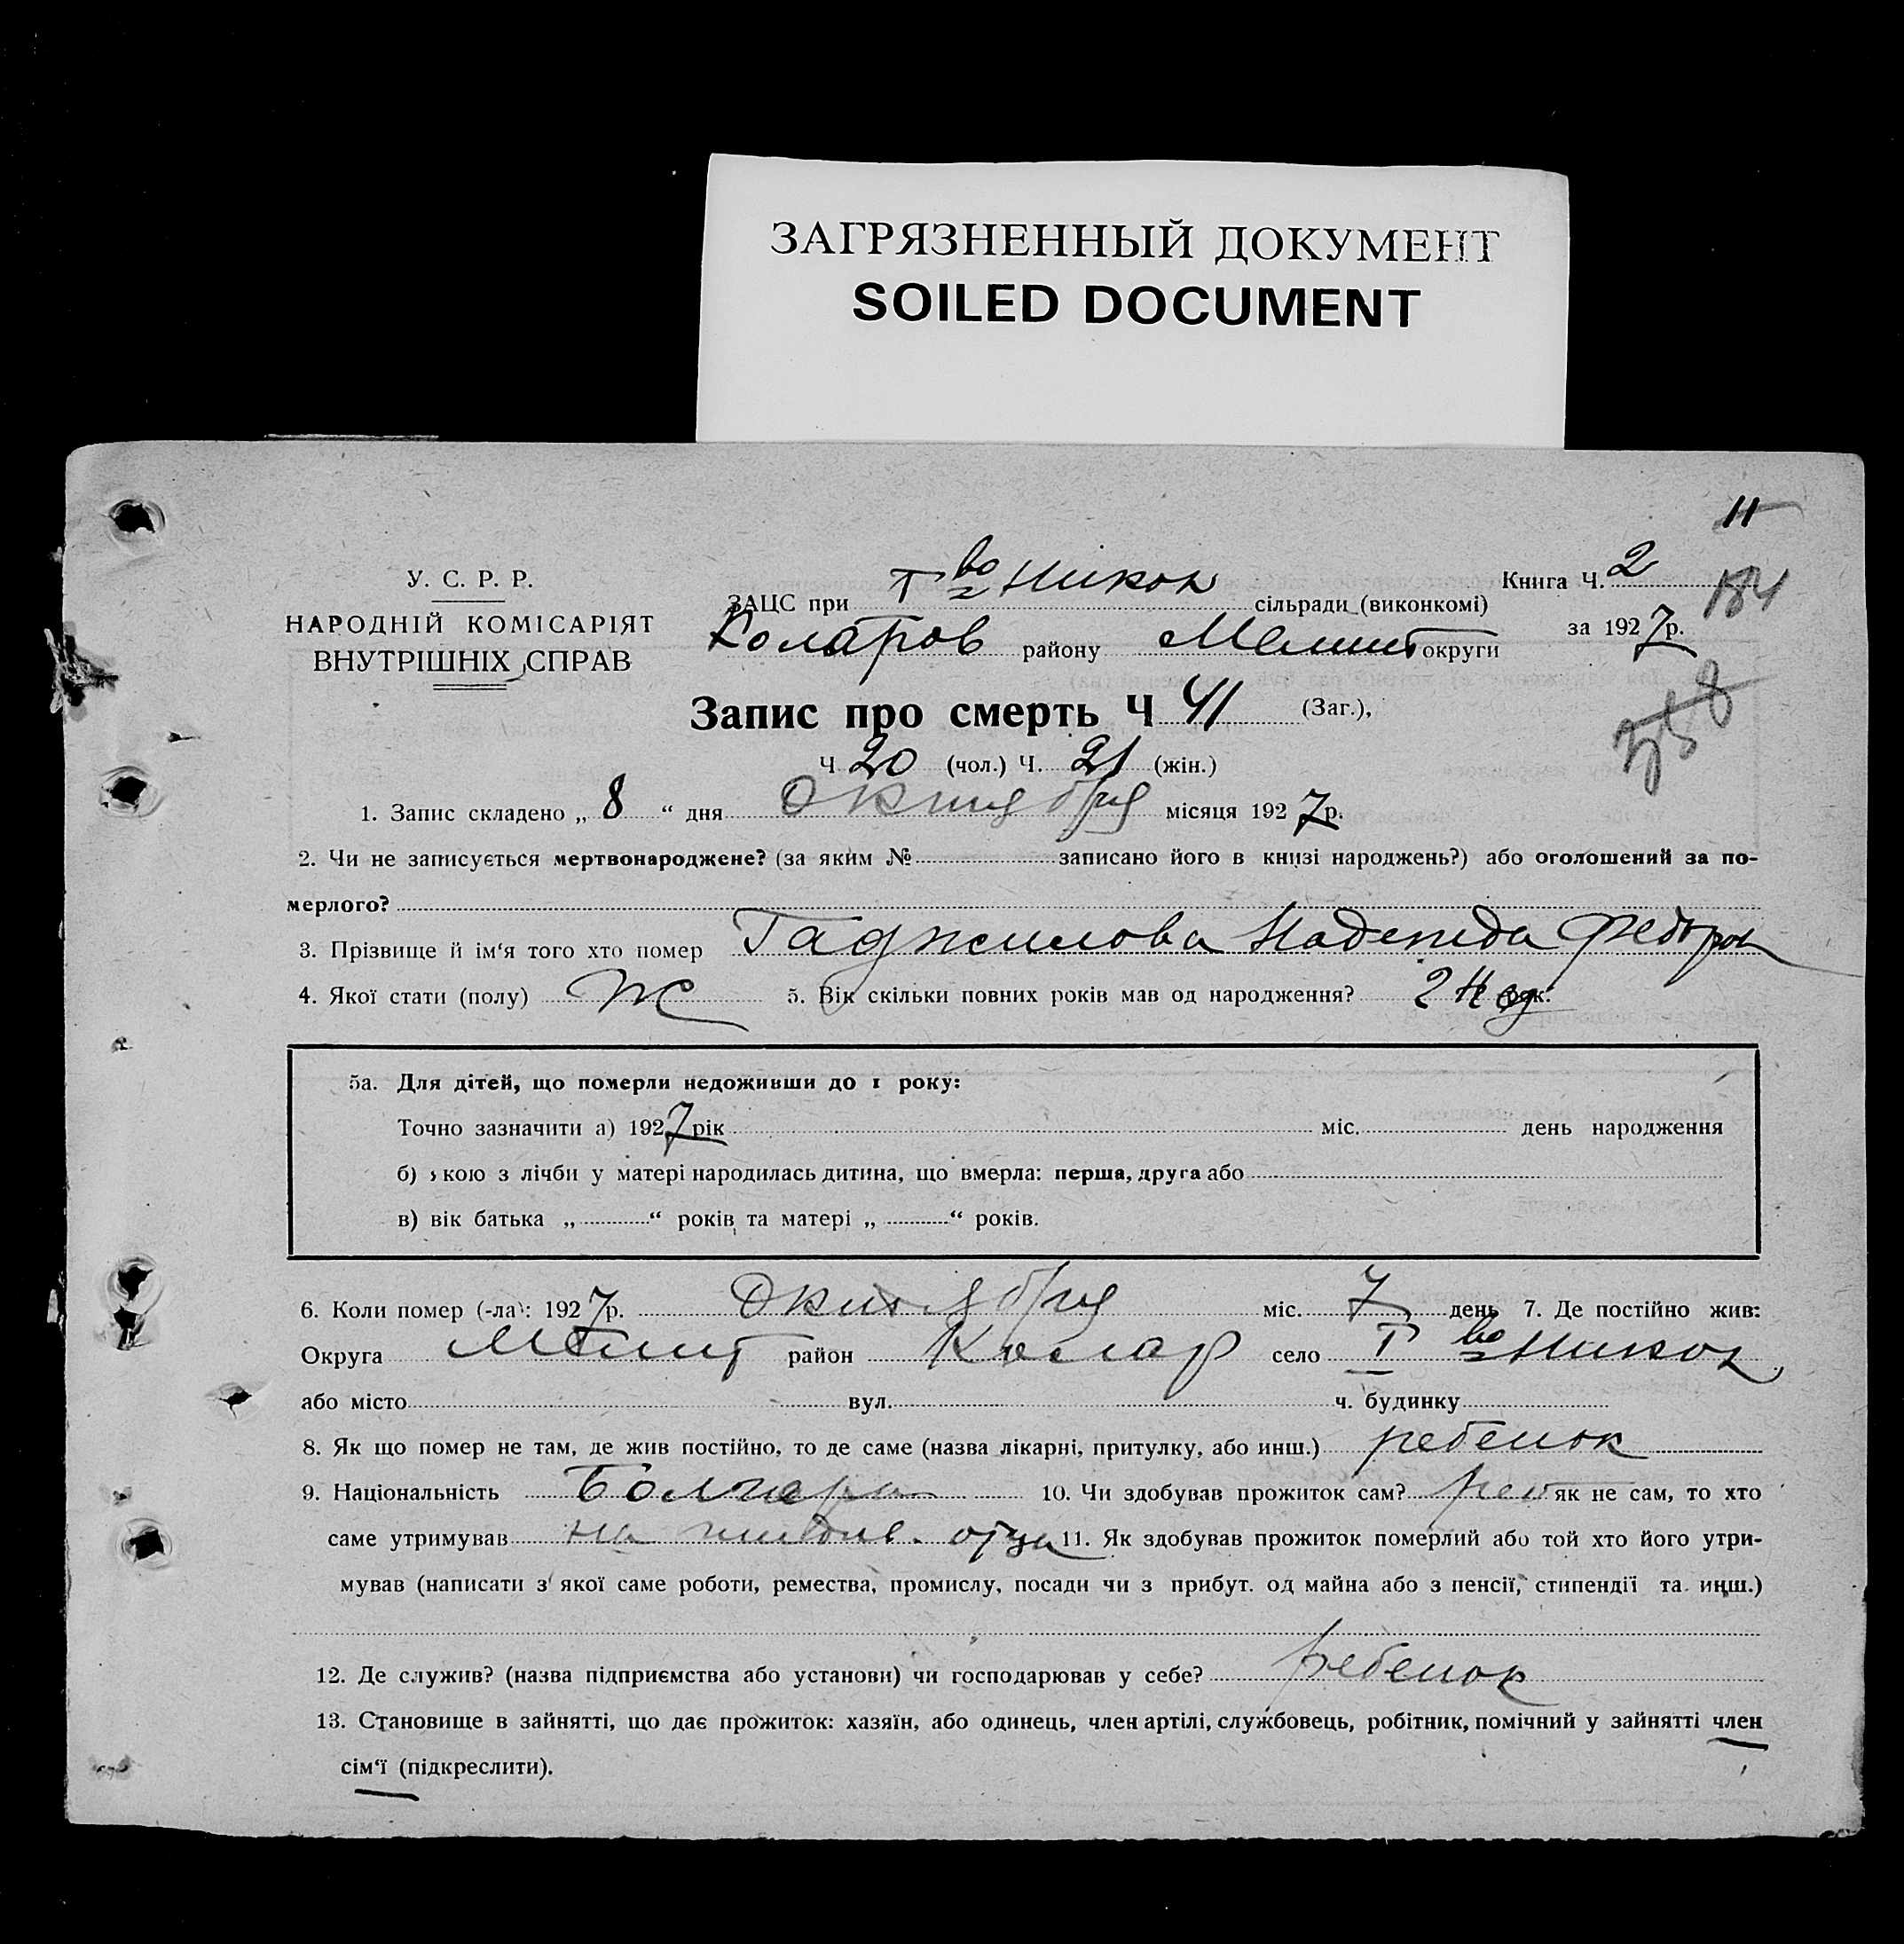 ЗАГРЯЗНЕННЫЙ ДОКУМЕНТ
SOILED DOCUMENT
11
184
358
У. С. Р. Р.
НАРОДНІЙ КОМІСАРІЯТ
ВНУТРІШНІХ СПРАВ
Книга Ч. 2
за 1927 р.
ЗАЦС при Iво Никол сільради (виконкомі)
Коларов району Мелит округи
Запис про смерть Ч 41 (Заг.),
Ч 20 (чол.) Ч. 21 (жін.)
1. Запис складено „ 8 “ дня Октября місяця 1927 р.
2. Чи не записується мертвонароджене? (за яким № записано його в книзі народжень?) або оголошений за по-
мерлого?
3. Прізвище й ім‘я того хто помер Гаджилова Надежда Федоров
4. Якої стати (полу) ж 5. Вік скільки повних років мав од народження? 2 Нед рок.
5а. Для дітей, що померли недоживши до 1 року:
Точно зазначити а) 1927 рік міс. день народження
б) якою з лічби у матері народилась дитина, що вмерла: перша, друга або
в) вік батька „ “ років та матері „ “ років.
6. Коли помер (-ла): 1927 р. Октября міс. 7 день 7. Де постійно жив:
Округа Мелит район Колар село Iво Никол
або місто вул. ч. будинку
8. Як що помер не там, де жив постійно, то де саме (назва лікарні, притулку, або инш.) ребенок
9. Національність Болгарка 10. Чи здобував прожиток сам? реб як не сам, то хто
саме утримував на иждив. отца 11. Як здобував прожиток померлий або той хто його утри-
мував (написати з якої саме роботи, ремества, промислу, посади чи з прибут. од майна або з пенсії, стипендії та инш.)
12. Де служив? (назва підприємства або установи) чи господарював у себе? ребенок
13. Становище в зайнятті, що дає прожиток: хазяїн, або одинець, член артілі, службовець, робітник, помічний у зайнятті член
сім‘ї (підкреслити).